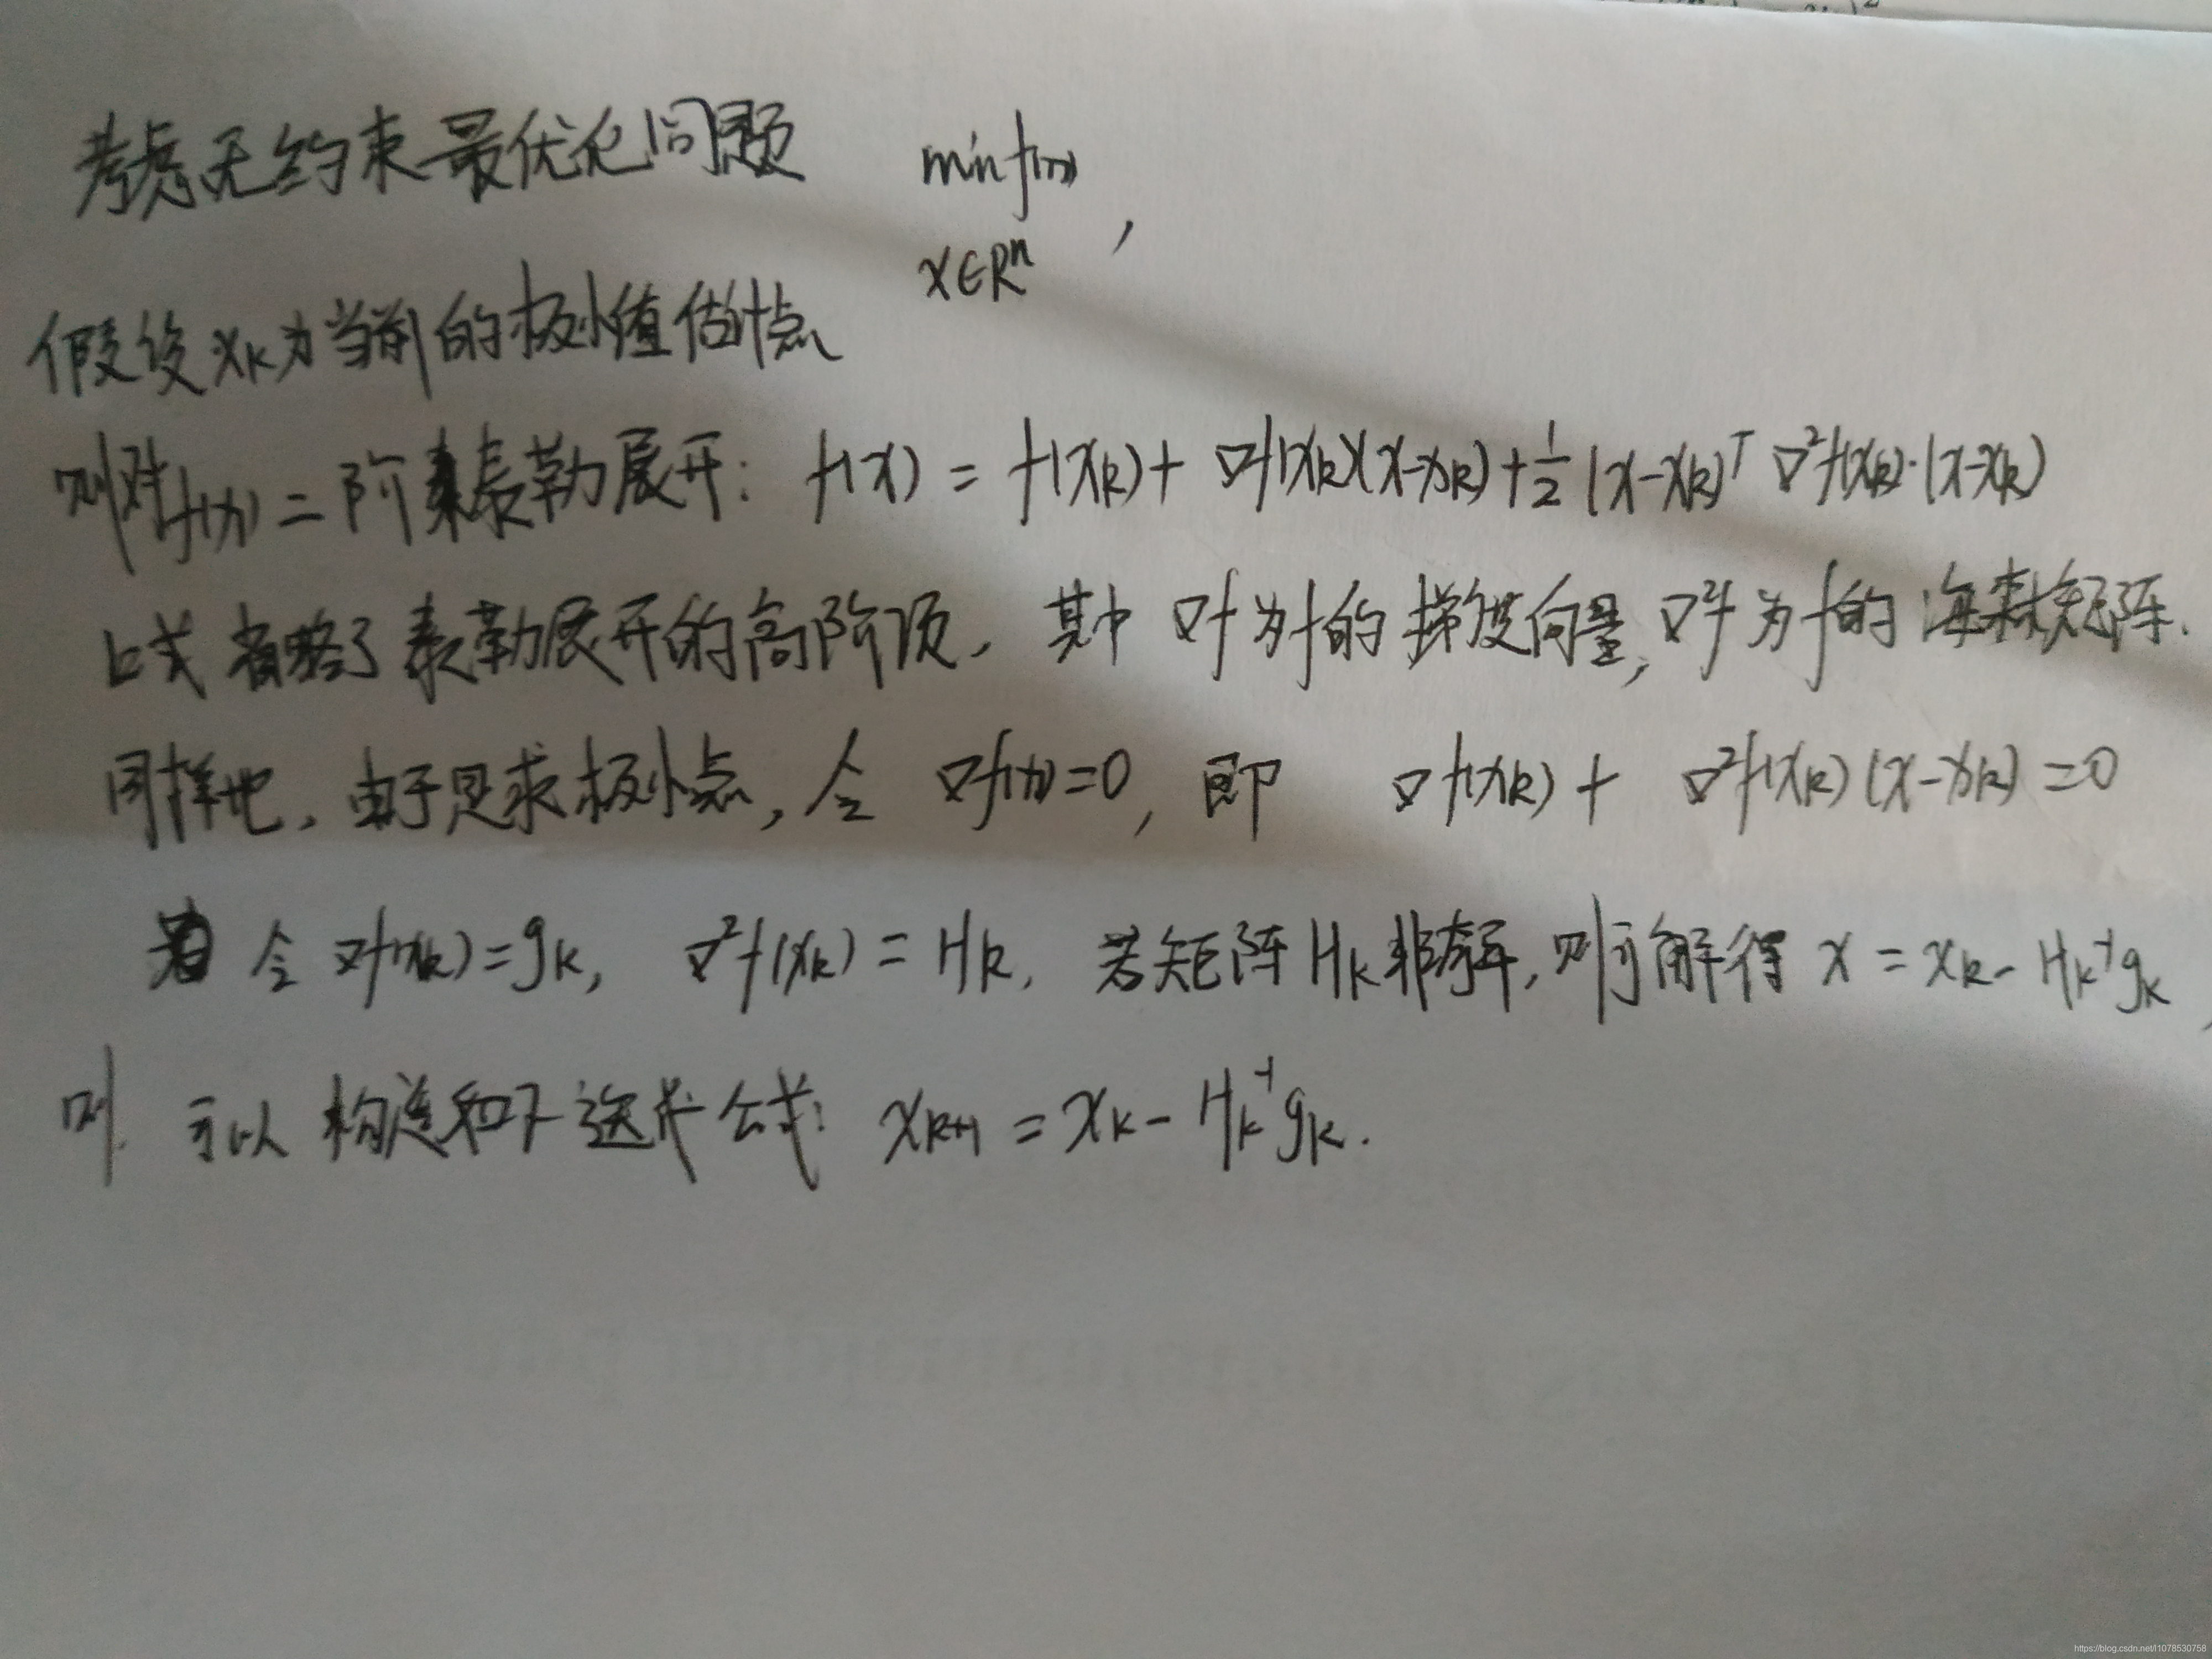 考虑无约束最优化问题 min f(x) ,
x∈Rⁿ
假设 xₖ为当前的极小值估计点
则对f(x)二阶泰勒展开: f(x) = f(xₖ) + ∇f(xₖ)(x-xₖ) + 1/2 (x-xₖ)ᵀ ∇²f(xₖ)·(x-xₖ)
上式省略了泰勒展开的高阶项, 其中 ∇f 为f的梯度向量, ∇²f 为f的海森矩阵.
同样地, 由于是求极小点, 令 ∇f(x)=0, 即 ∇f(xₖ) + ∇²f(xₖ)(x-xₖ)=0
令 ∇f(xₖ)=gₖ, ∇²f(xₖ) = Hₖ, 若矩阵 Hₖ非奇异, 则可解得 x = xₖ - Hₖ⁻¹gₖ,
则 可以构造如下迭代公式: xₖ₊₁ = xₖ - Hₖ⁻¹gₖ.
https://blog.csdn.net/l1078530758